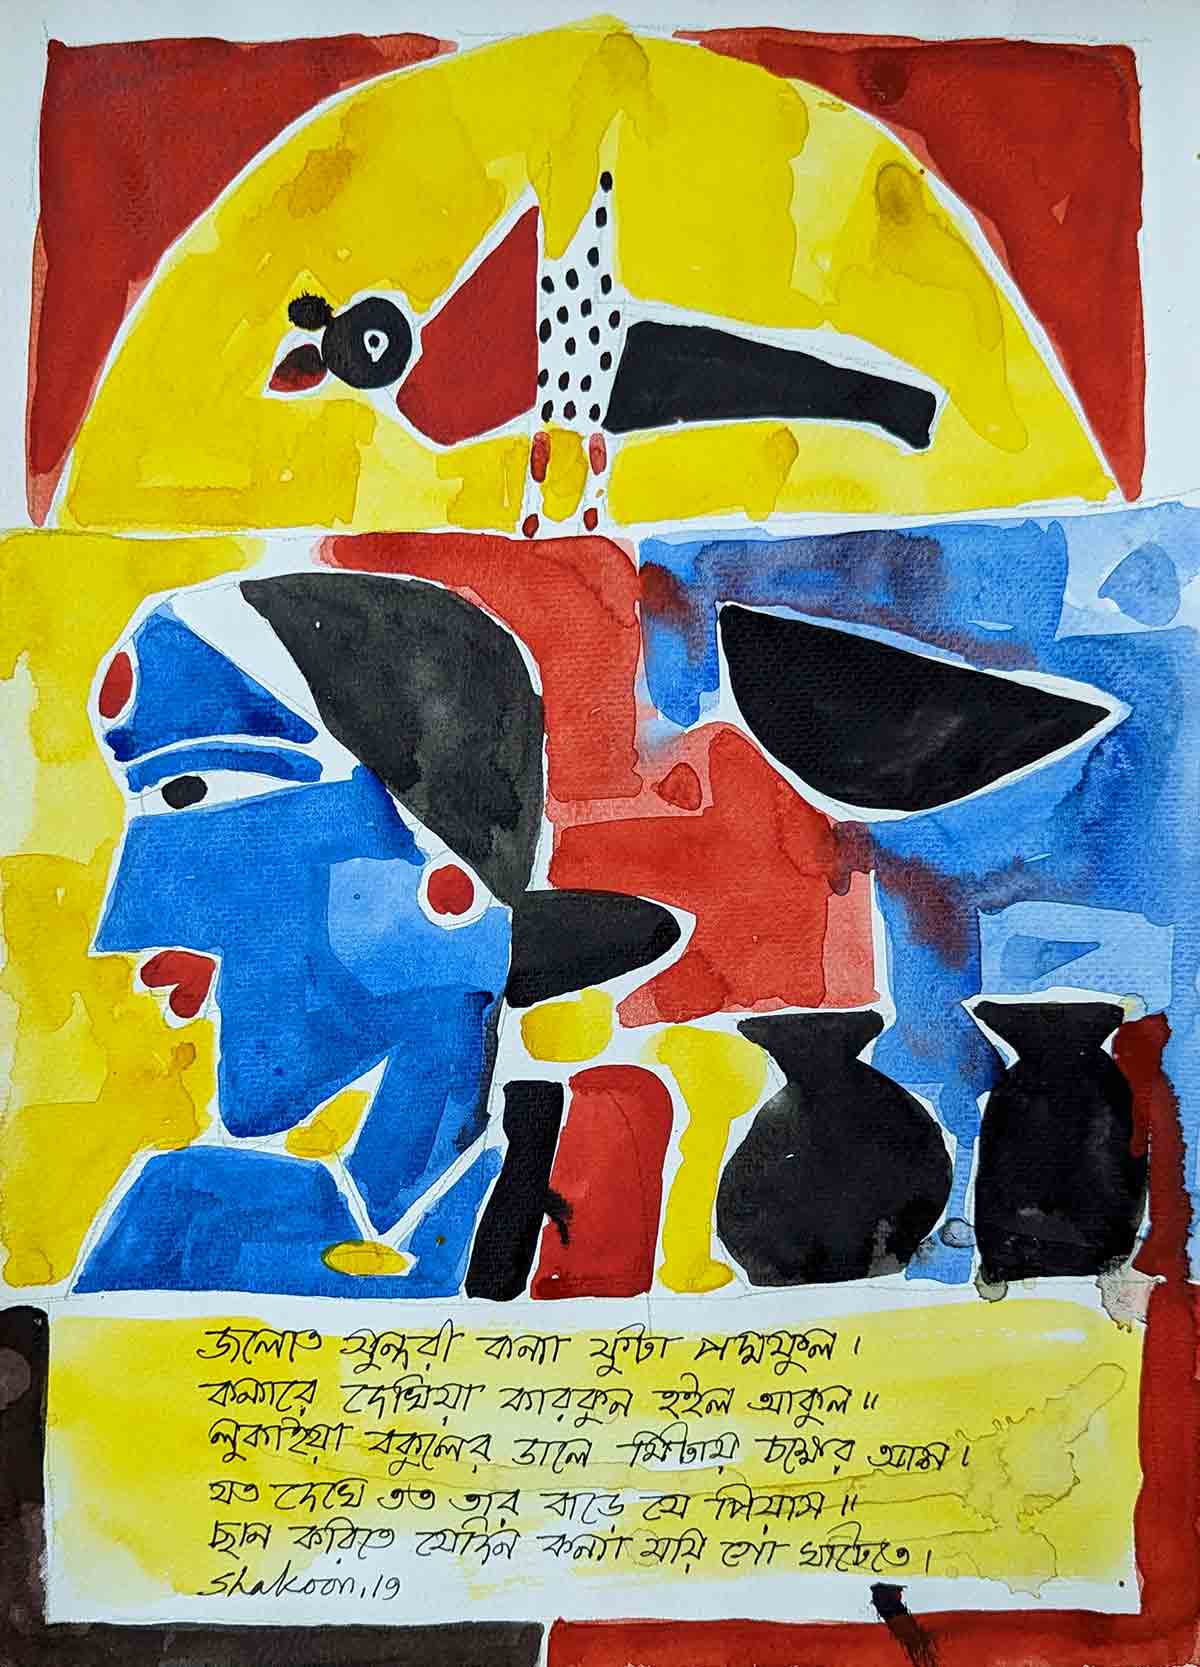 জলেতে সুন্দরী কন্যা ফুটা পদ্মফুল।
কন্যারে দেখিয়া কারকুন হইল আকুল॥
লুকাইয়া বকুলের ডালে মিটায় চক্ষের আশ।
যত দেখে তত তার বাড়ে যে পিয়াস॥
ছান করিতে যেদিন কন্যা যায় গো ঘাটেতে।
Shakoon, 19